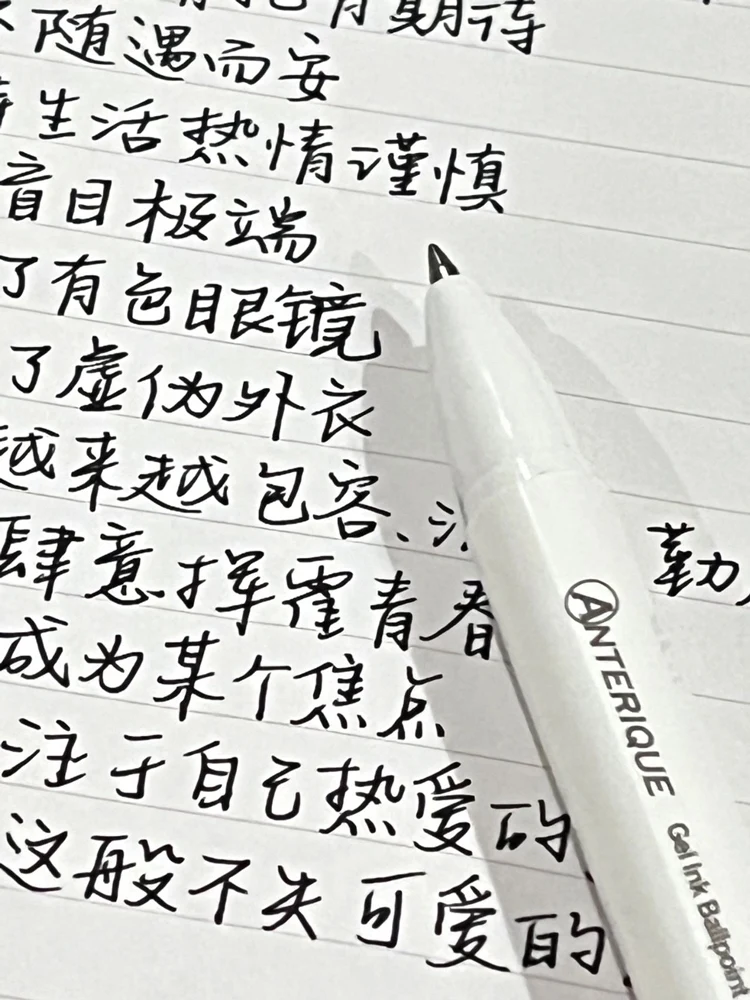 有期待
随遇而安
生活热情谨慎
盲目极端
了有色眼镜
了虚伪外衣
越来越包容、
肆意挥霍青春
勤
成为某个焦点
注于自己热爱的
这般不失可爱的
ANTERIQUE Gel Ink Ballpoint